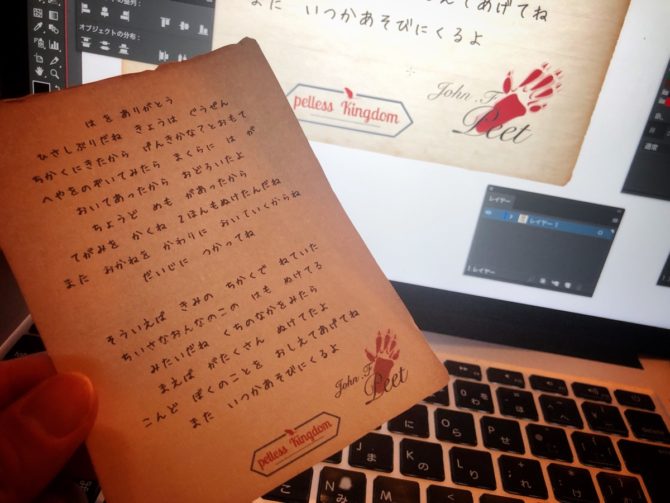 オブジェクトの分布：
いつかあそびにくるよ
pelless Kingdom
John. F.
Peet
レイヤー
レイヤー 1
1 レイヤー
はをありがとう
ひさしぶりだね きょうは ぐうぜん
ちかくにきたから げんきかなてとおもて
へやをのぞいてみたら まくらに は が
おいてあったから おどろいたよ
ちょうど めも があったから
てがみを かくね 2ほんもぬけたんだね
また おかねを かわりに おいていくからね
だいじに つかってね
そういえば きみの ちかくで ねていた
ちいさなおんなのこの はも ぬけてる
みたいだね くちのなかをみたら
まえば がたくさん ぬけてたよ
こんど ぼくのことを おしえてあげてね
また いつかあそびにくるよ
John. F.
Peet
pelless Kingdom